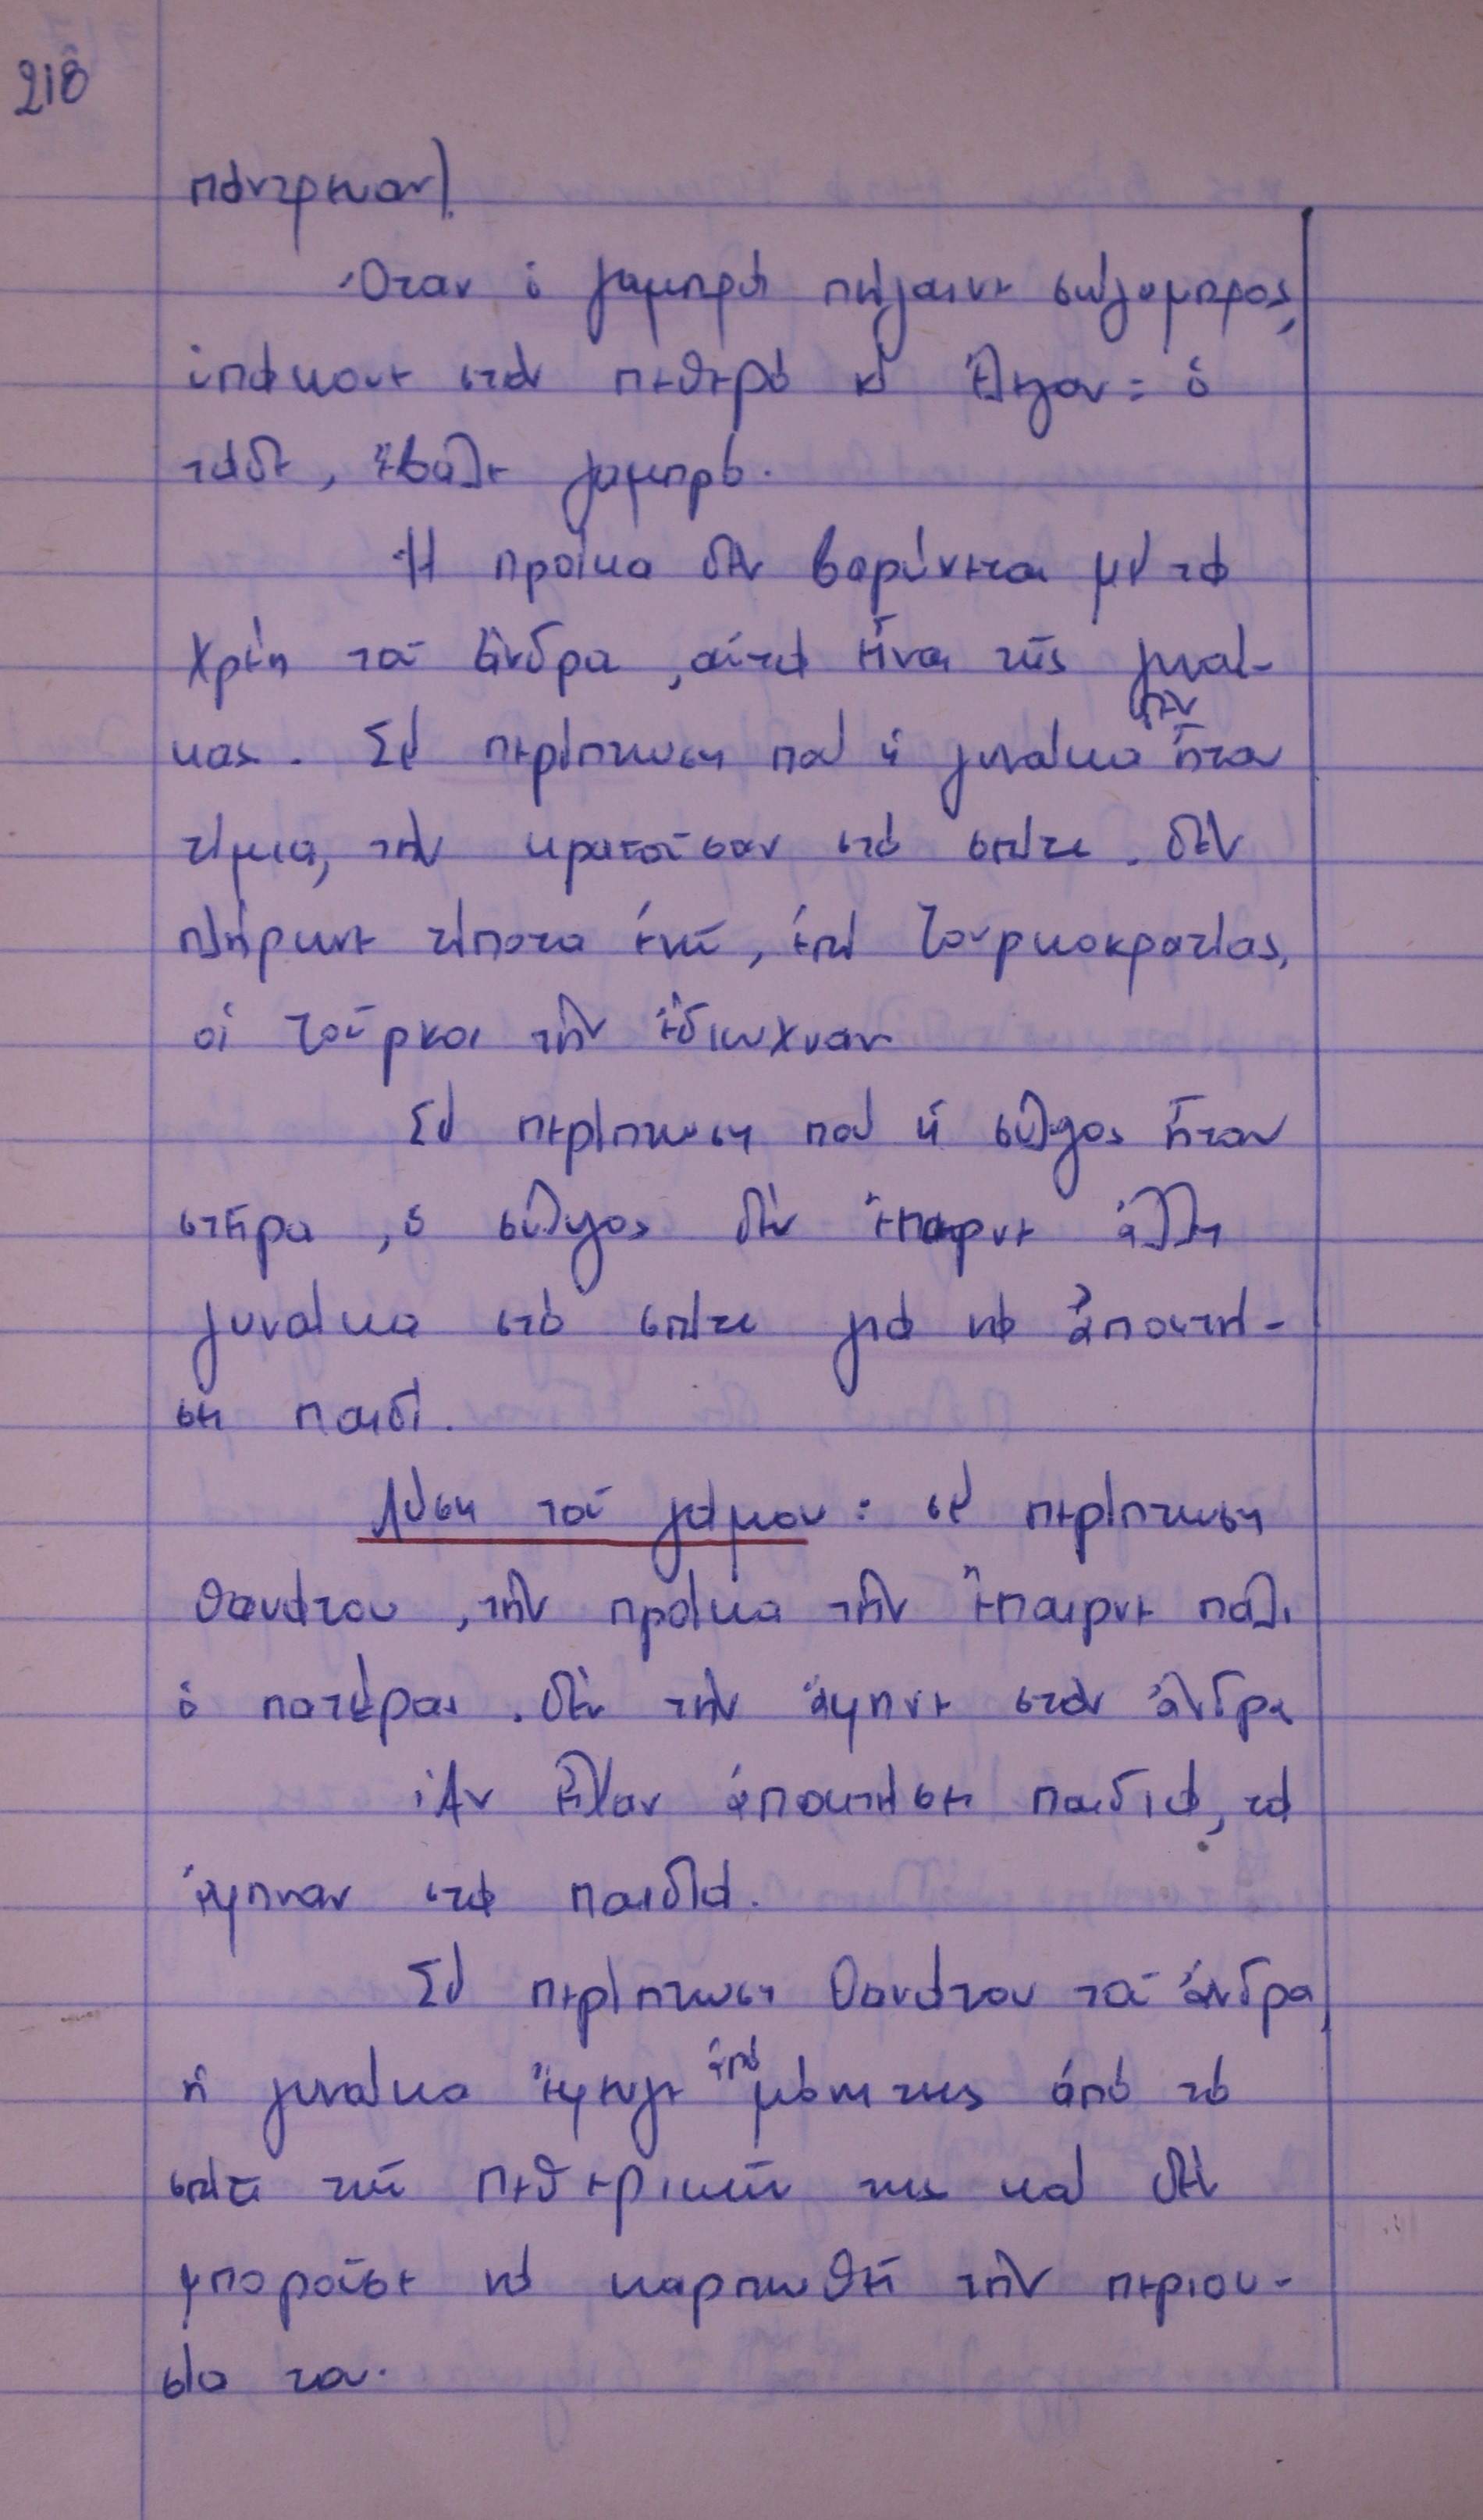 218
πάντρευαν).
Ὅταν ὁ γαμπρὸς πήγαινε σώγαμπρος,
ὑπάκουε στὸν πεθερὸ κ' ἔλεγαν: ὁ
τάδε, ἔβαλε γαμπρό.
Ἡ προίκα δὲν βαρύνεται μὲ τὰ
χρέη τοῦ ἄνδρα, αὐτὰ εἶναι τῆς γυναί-
κας. Σὲ περίπτωση ποὺ ἡ γυναίκα δὲν ἦταν
τίμια, τὴν κρατοῦσαν στὸ σπίτι. δὲν
πλήρωνε τίποτα ἐκεῖ, ἐπὶ Τουρκοκρατίας,
οἱ Τοῦρκοι τὴν ἔδιωχναν
Σὲ περίπτωση ποὺ ἡ σύζυγος ἦταν
στεῖρα, ὁ σύζυγος δὲν ἔπαιρνε ἄλλη
γυναίκα στὸ σπίτι γιὰ νὰ ἀποκτή-
σει παιδί.
Λύση τοῦ γάμου: σὲ περίπτωση
θανάτου, τὴν προίκα τὴν ἔπαιρνε πάλι
ὁ πατέρας. δὲν τὴν ἄφηνε στὸν ἄνδρα
Ἂν εἶχαν ἀποκτήσει παιδιά, τὰ
ἄφηναν στὰ παιδιά.
Σὲ περίπτωση θανάτου τοῦ ἄνδρα,
ἡ γυναίκα ἔφευγε ἀπὸ μόνη της ἀπὸ τὸ
σπίτι τῶν πεθερικῶν της καὶ δὲν
μποροῦσε νὰ καρπωθεῖ τὴν περιου-
σία του.